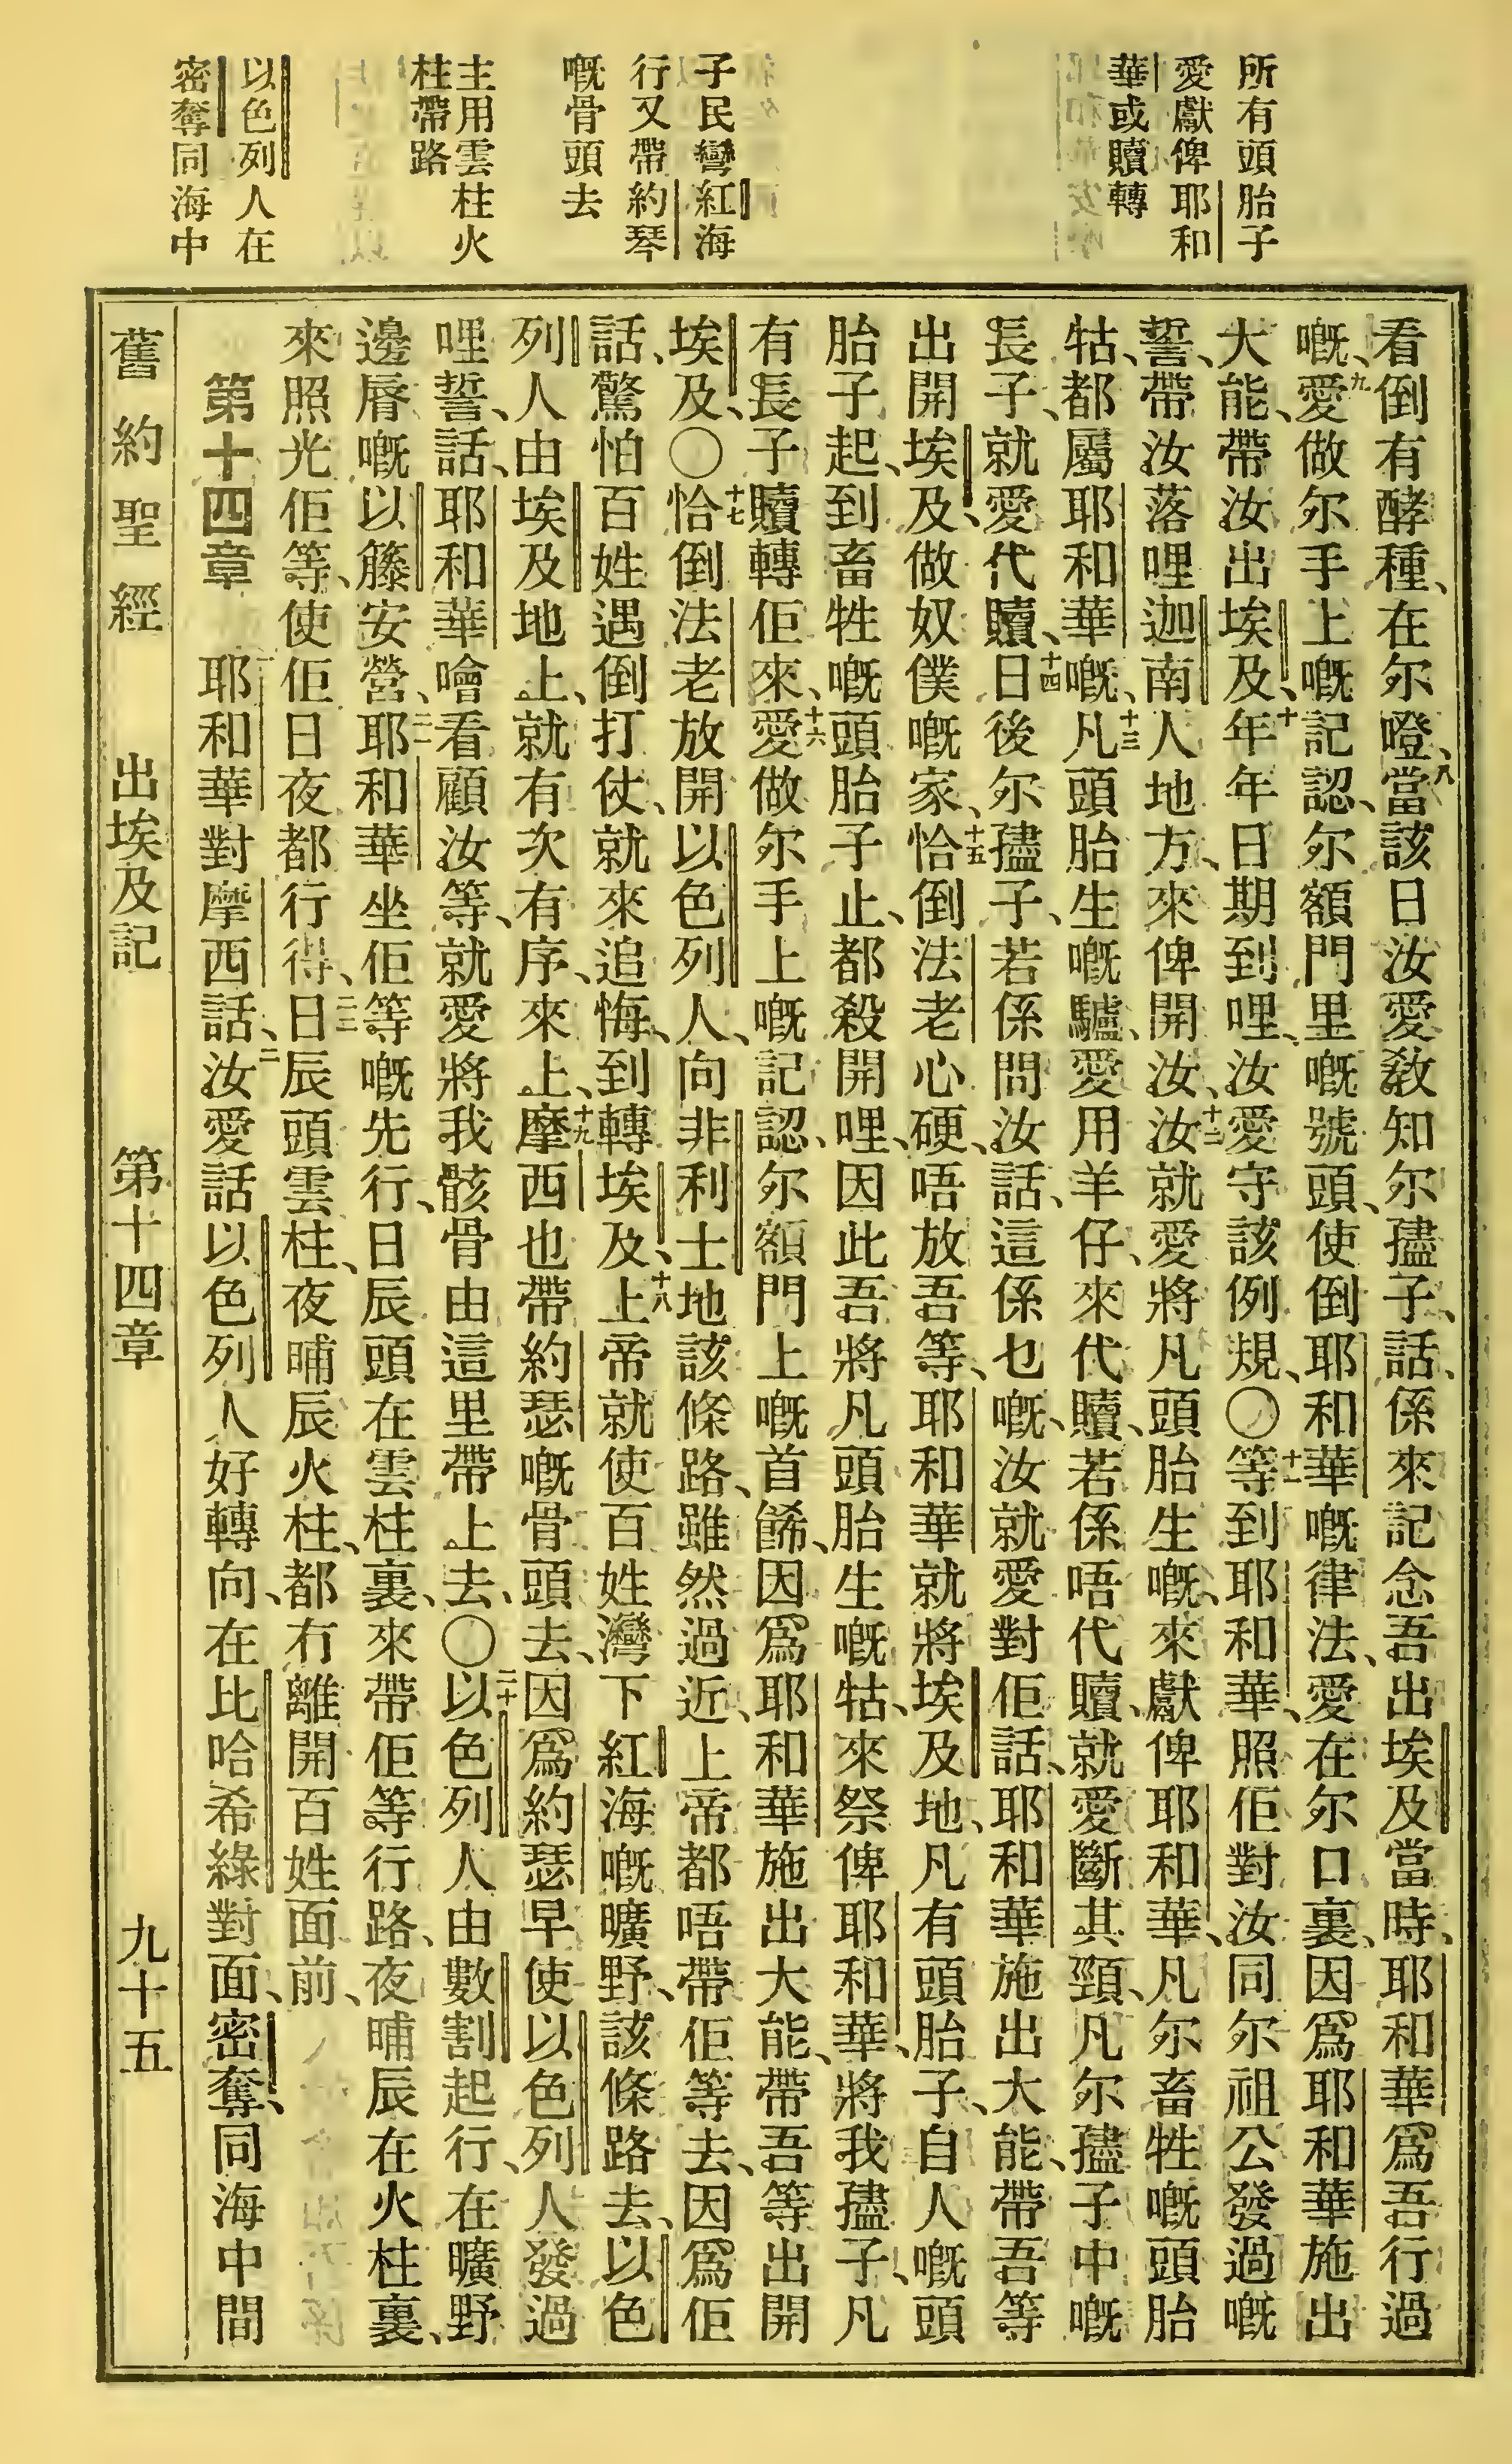 所有頭胎子
愛獻俾耶和
華或贖轉
子民彎紅海
行又帶約琴
嘅骨頭去
主用雲柱火
柱帶路
以色列人在
密奪同海中
看倒有酵種、在尔噔、八當該日汝愛教知尔𡥧子、話、係來記念吾出埃及當時、耶和華爲吾行過
嘅、九愛做尔手上嘅記認、尔額門里嘅號頭、使倒耶和華嘅律法、愛在尔口裏、因爲耶和華施出
大能、帶汝出埃及、十年年日期到哩、汝愛守該例規、〇十一等到耶和華、照佢對汝同尔祖公發過嘅
誓、帶汝落哩迦南人地方、來俾開汝、十二汝就愛將凡頭胎生嘅、來獻俾耶和華、凡尔畜牲嘅頭胎
牯、都屬耶和華嘅、十三凡頭胎生嘅驢、愛用羊仔、來代贖、若係唔代贖、就愛斷其頸、凡尔𡥧子中嘅
長子、就愛代贖、十四日後尔𡥧子、若係問汝話、這係乜嘅、汝就愛對佢話、耶和華施出大能、帶吾等
出開埃及、做奴僕嘅家、十五恰倒法老心硬、唔放吾等、耶和華就將埃及地、凡有頭胎子、自人嘅頭
胎子起、到畜牲嘅頭胎子止、都殺開哩、因此吾將凡頭胎生嘅牯、來祭俾耶和華、將我𡥧子、凡
有長子贖轉佢來、十六愛做尔手上嘅記認、尔額門上嘅首餙、因爲耶和華施出大能、帶吾等出開
埃及、〇十七恰倒法老放開以色列人、向非利士地該條路、雖然過近、上帝都唔帶佢等去、因爲佢
話、驚怕百姓遇倒打仗、就來追悔、到轉埃及、十八上帝就使百姓灣下紅海嘅曠野、該條路去、以色
列人由埃及地上、就有次有序、來上、十九摩西也帶約瑟嘅骨頭去、因爲約瑟早使以色列人發過
哩誓、話、耶和華噲看顧汝等、就愛將我骸骨由這里帶上去、〇二十以色列人由數割起行、在曠野
邊脣嘅以籐安營、二一耶和華坐佢等嘅先行、日辰頭在雲柱裏、來帶佢等行路、夜晡辰在火柱裏、
來照光佢等、使佢日夜都行得、二二日辰頭雲柱、夜晡辰火柱、都冇離開百姓面前、
第十四章　一耶和華對摩西話、二汝愛話以色列人好轉向、在比哈希綠對面、密奪、同海中間
舊約聖經　出埃及記　第十四章　九十五